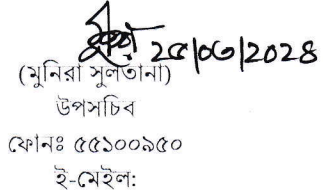 ২৫/০৩/২০২৪
(মুনিরা সুলতানা)
উপসচিব
ফোনঃ ৫৫১০০৯৫০
ই-মেইল: